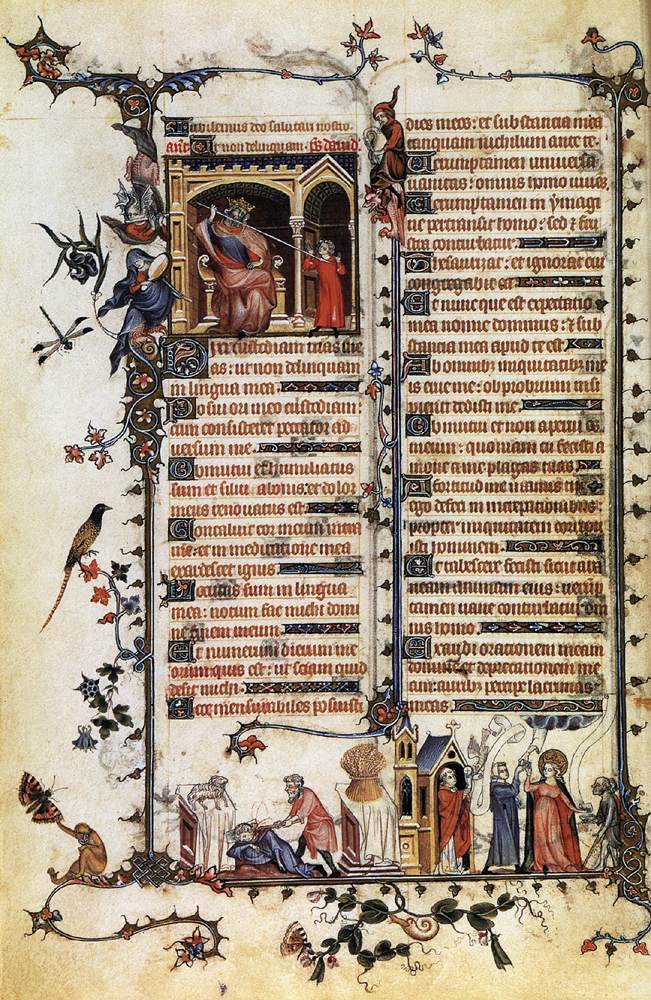 Iubilemus deo salutari nostro
ant Ut non delinquam. ps david.
Dixi custodiam uias me
as: ut non delinquam
in lingua mea.
Posui ori meo custodiam:
cum consisteret peccator ad
uersum me.
Obmutui et humiliatus
sum et silui abonis: et dolor
meus renouatus est.
Concaluit cor meum intra
me: et in meditatione mea
exardescet ignis.
Locutus sum in lingua
mea: notum fac michi domi
ne finem meum.
Et numerum dierum me
orum quis est: ut sciam quid
desit michi.
Ecce mensurabiles posuisti
dies meos: et substancia mea
tanquam nichilum ante te.
Ueruptamen uniuersa
uanitas: omnis homo uiuens
Ueruptamen in ymagi
ne pertransit homo: sed et frus
tra conturbatur.
Thesaurizat: et ignorat cui
congregabit ea.
Et nunc que est expectatio
mea nonne dominus: et sub
stancia mea apud te est.
Ab omnibus iniquitatibus me
is erue me: obprobrium insi
pienti dedisti me.
Obmutui et non aperui os
meum: quoniam tu fecisti a
moue a me plagas tuas.
A fortitudine manus tue
ego defeci in increpationibus:
propter iniquitatem corripu
isti hominem.
Et tabescere fecisti sicut ara
neam animam eius: uerup
tamen uane conturbatur om
nis homo.
Exaudi orationem meam
domine et deprecationem me
am: auribus percipe lacrimas
meas.